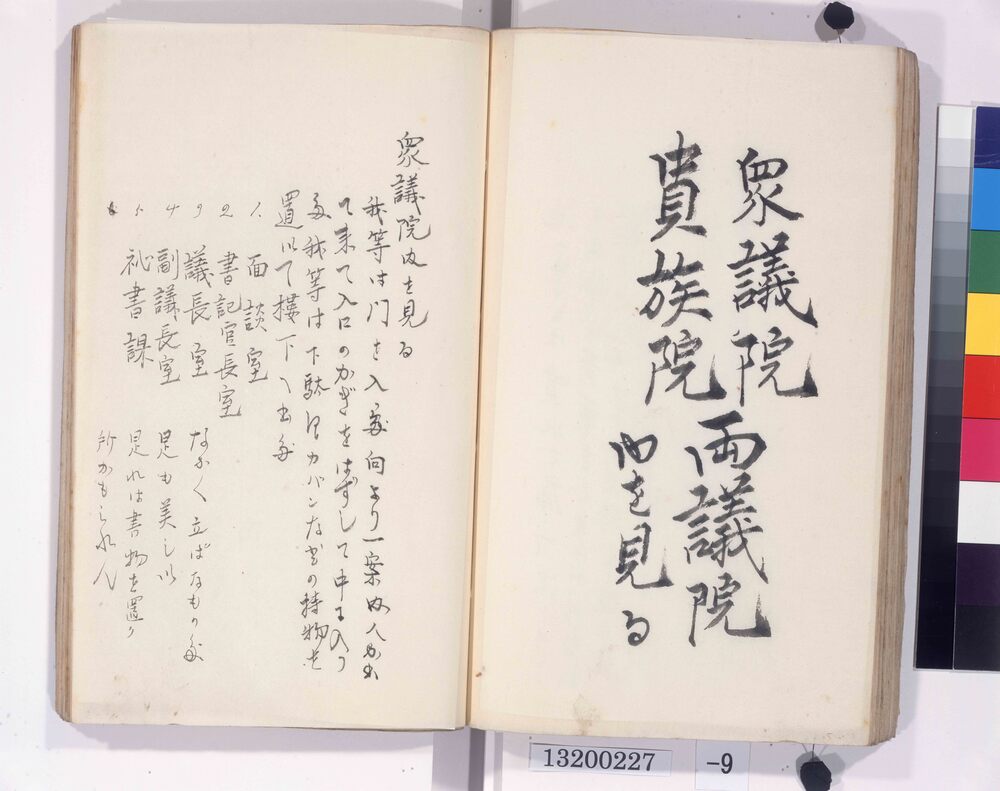 衆議院
貴族院 両議院
内を見る
衆議院内を見る
我等は門を入る 向より一案内人が出
て来て入口のかぎをはずして中に入り
我等は下駄 カバンなどの持物を
置いて楼下へ出
1. 面談室
2 書記官長室
3 議長室 なかく立ばなもの
4 副議長室 是も美しい
5 秘書課 是れは書物を置く
所かもしれん
13200227 -9